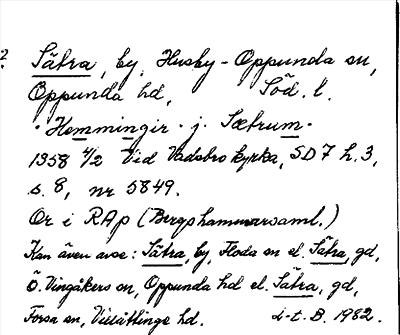 2
Sätra, by, Husby-Oppunda sn,
Oppunda hd, Söd. l.
· Hemmingir · j. Sætrum ·
1358 4/2 Vid Vadsbro kyrka, SD 7 h. 3,
s. 8, nr 5849.
Or i RAp (Bergshammarsaml.)
Kan även avse: Sätra, by, Floda sn el. Sätra, gd,
Ö. Vingåkers sn, Oppunda hd el. Sätra, gd,
Forsa sn, Villåttinge hd. L-t. B. 1982.